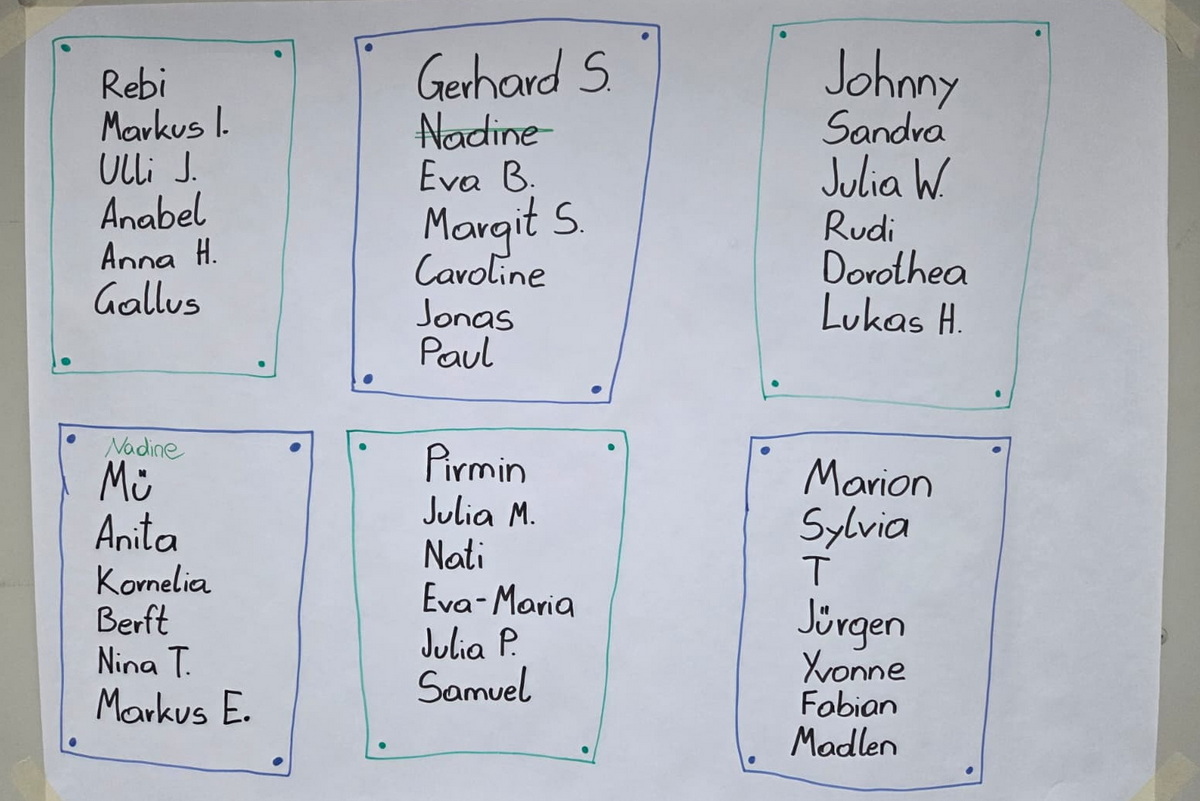 Rebi
Markus I.
Ulli J.
Anabel
Anna H.
Gallus
Gerhard S.
Nadine
Eva B.
Margit S.
Caroline
Jonas
Paul
Johnny
Sandra
Julia W.
Rudi
Dorothea
Lukas H.
Nadine
Mü
Anita
Kornelia
Berft
Nina T.
Markus E.
Pirmin
Julia M.
Nati
Eva-Maria
Julia P.
Samuel
Marion
Sylvia
T
Jürgen
Yvonne
Fabian
Madlen